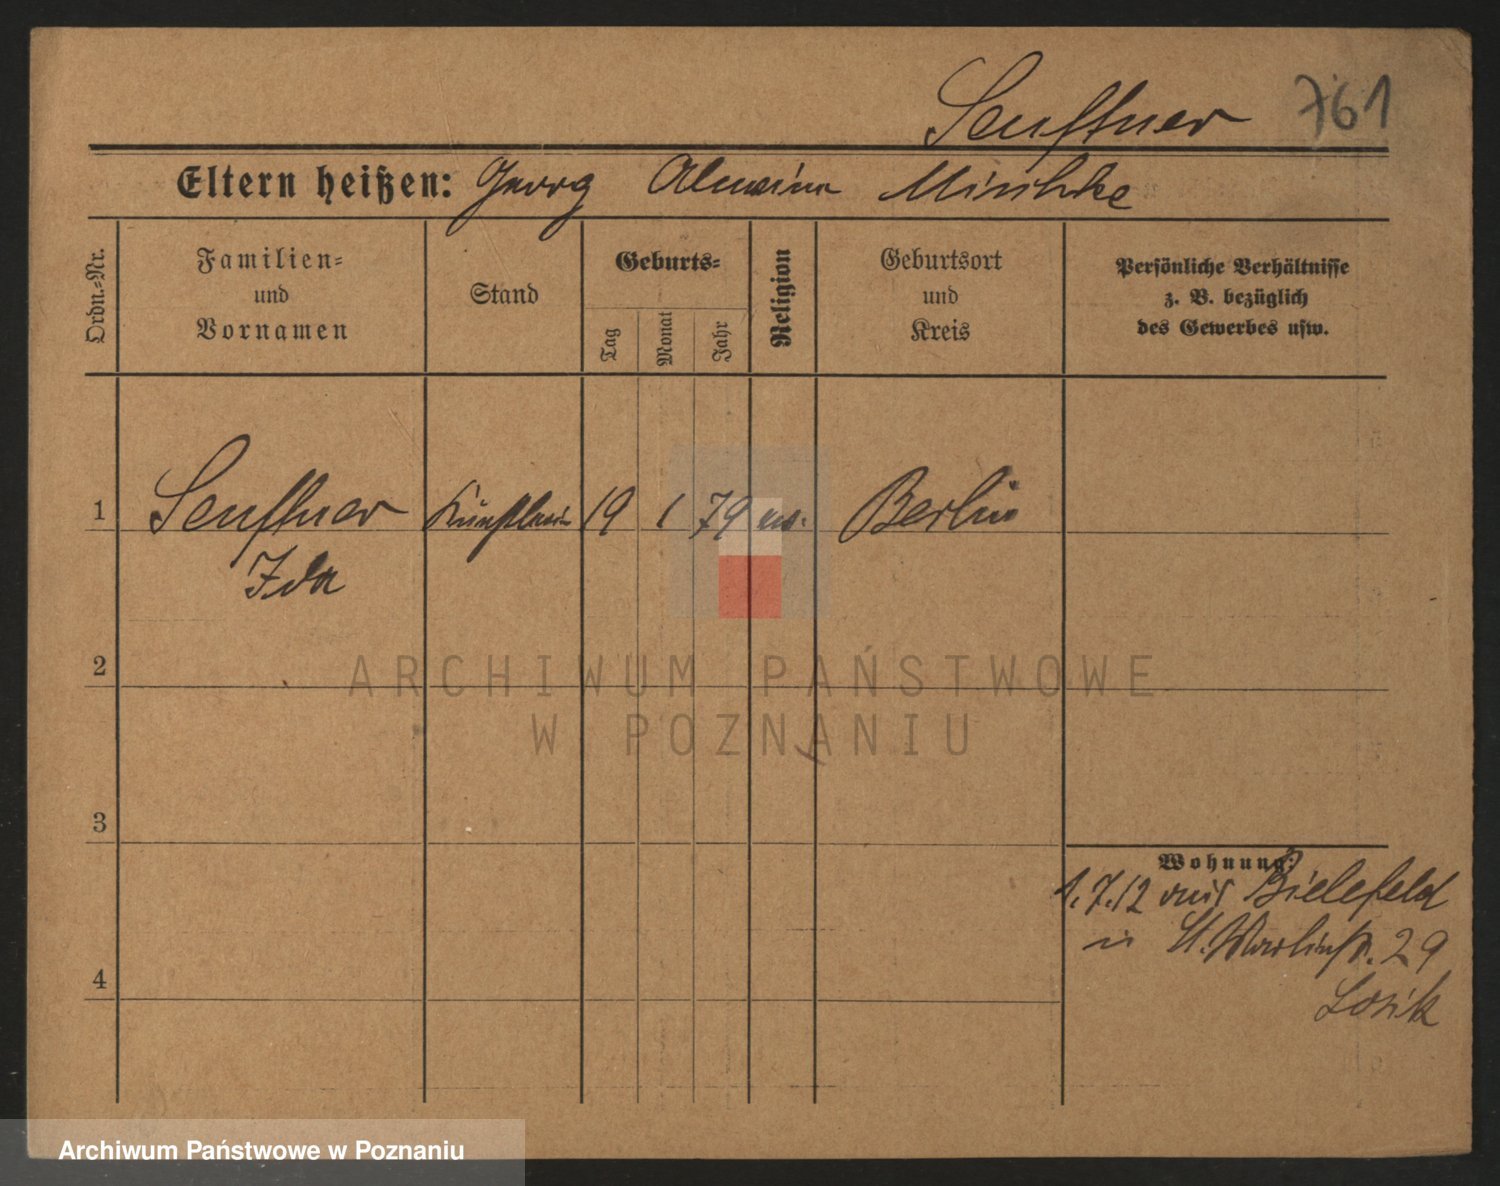 Senftner 761
Eltern heißen: Georg Alwine Mischke
Ordn.-Nr.
Familien-
und
Vornamen
Stand
Geburts-
Tag
Monat
Jahr
Religion
Geburtsort
und
Kreis
Persönliche Verhältnisse
z. B. bezüglich
des Gewerbes usw.
1 Senftner Künstlerin 19 1 79 ev. Berlin
Ida
2
3
4
Wohnung:
1.7.12 aus Bielefeld
in St. Martinstr. 29
ARCHIWUM PAŃSTWOWE
W POZNANIU
Archiwum Państwowe w Poznaniu